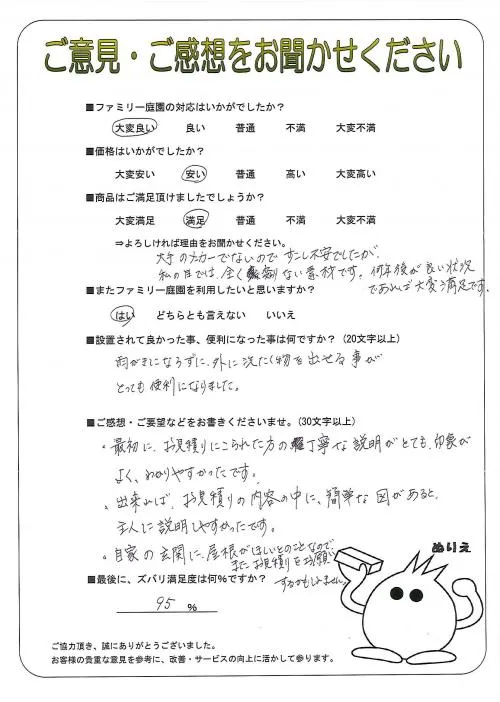 ご意見・ご感想をお聞かせください
■ファミリー庭園の対応はいかがでしたか?
大変良い 良い 普通 不満 大変不満
■価格はいかがでしたか?
大変安い 安い 普通 高い 大変高い
■商品はご満足頂けましたでしょうか?
大変満足 満足 普通 不満 大変不満
⇒よろしければ理由をお聞かせください。
大手のメーカーでないので すこし不安でしたが、
私の目では、全く 劣らない素材です。何年後が良い状況
であれば大変満足です。
■またファミリー庭園を利用したいと思いますか?
はい どちらとも言えない いいえ
■設置されて良かった事、便利になった事は何ですか?(20文字以上)
雨がきにならずに、外に洗たく物を出せる事が
とっても便利になりました。
■ご感想・ご要望などをお書きくださいませ。(30文字以上)
・最初に、お見積りにこられた方の丁寧な説明がとても、印象が
よく、わかりやすかったです。
・出来れば、お見積りの内容の中に、簡単な図があると、
主人に説明しやすかったです。
・自家の玄関に、屋根がほしいとのことなので
また お見積りをお願い
するかもしれません。
■最後に、ズバリ満足度は何%ですか?
95 %
ぬりえ
ご協力頂き、誠にありがとうございました。
お客様の貴重な意見を参考に、改善・サービスの向上に活かして参ります。